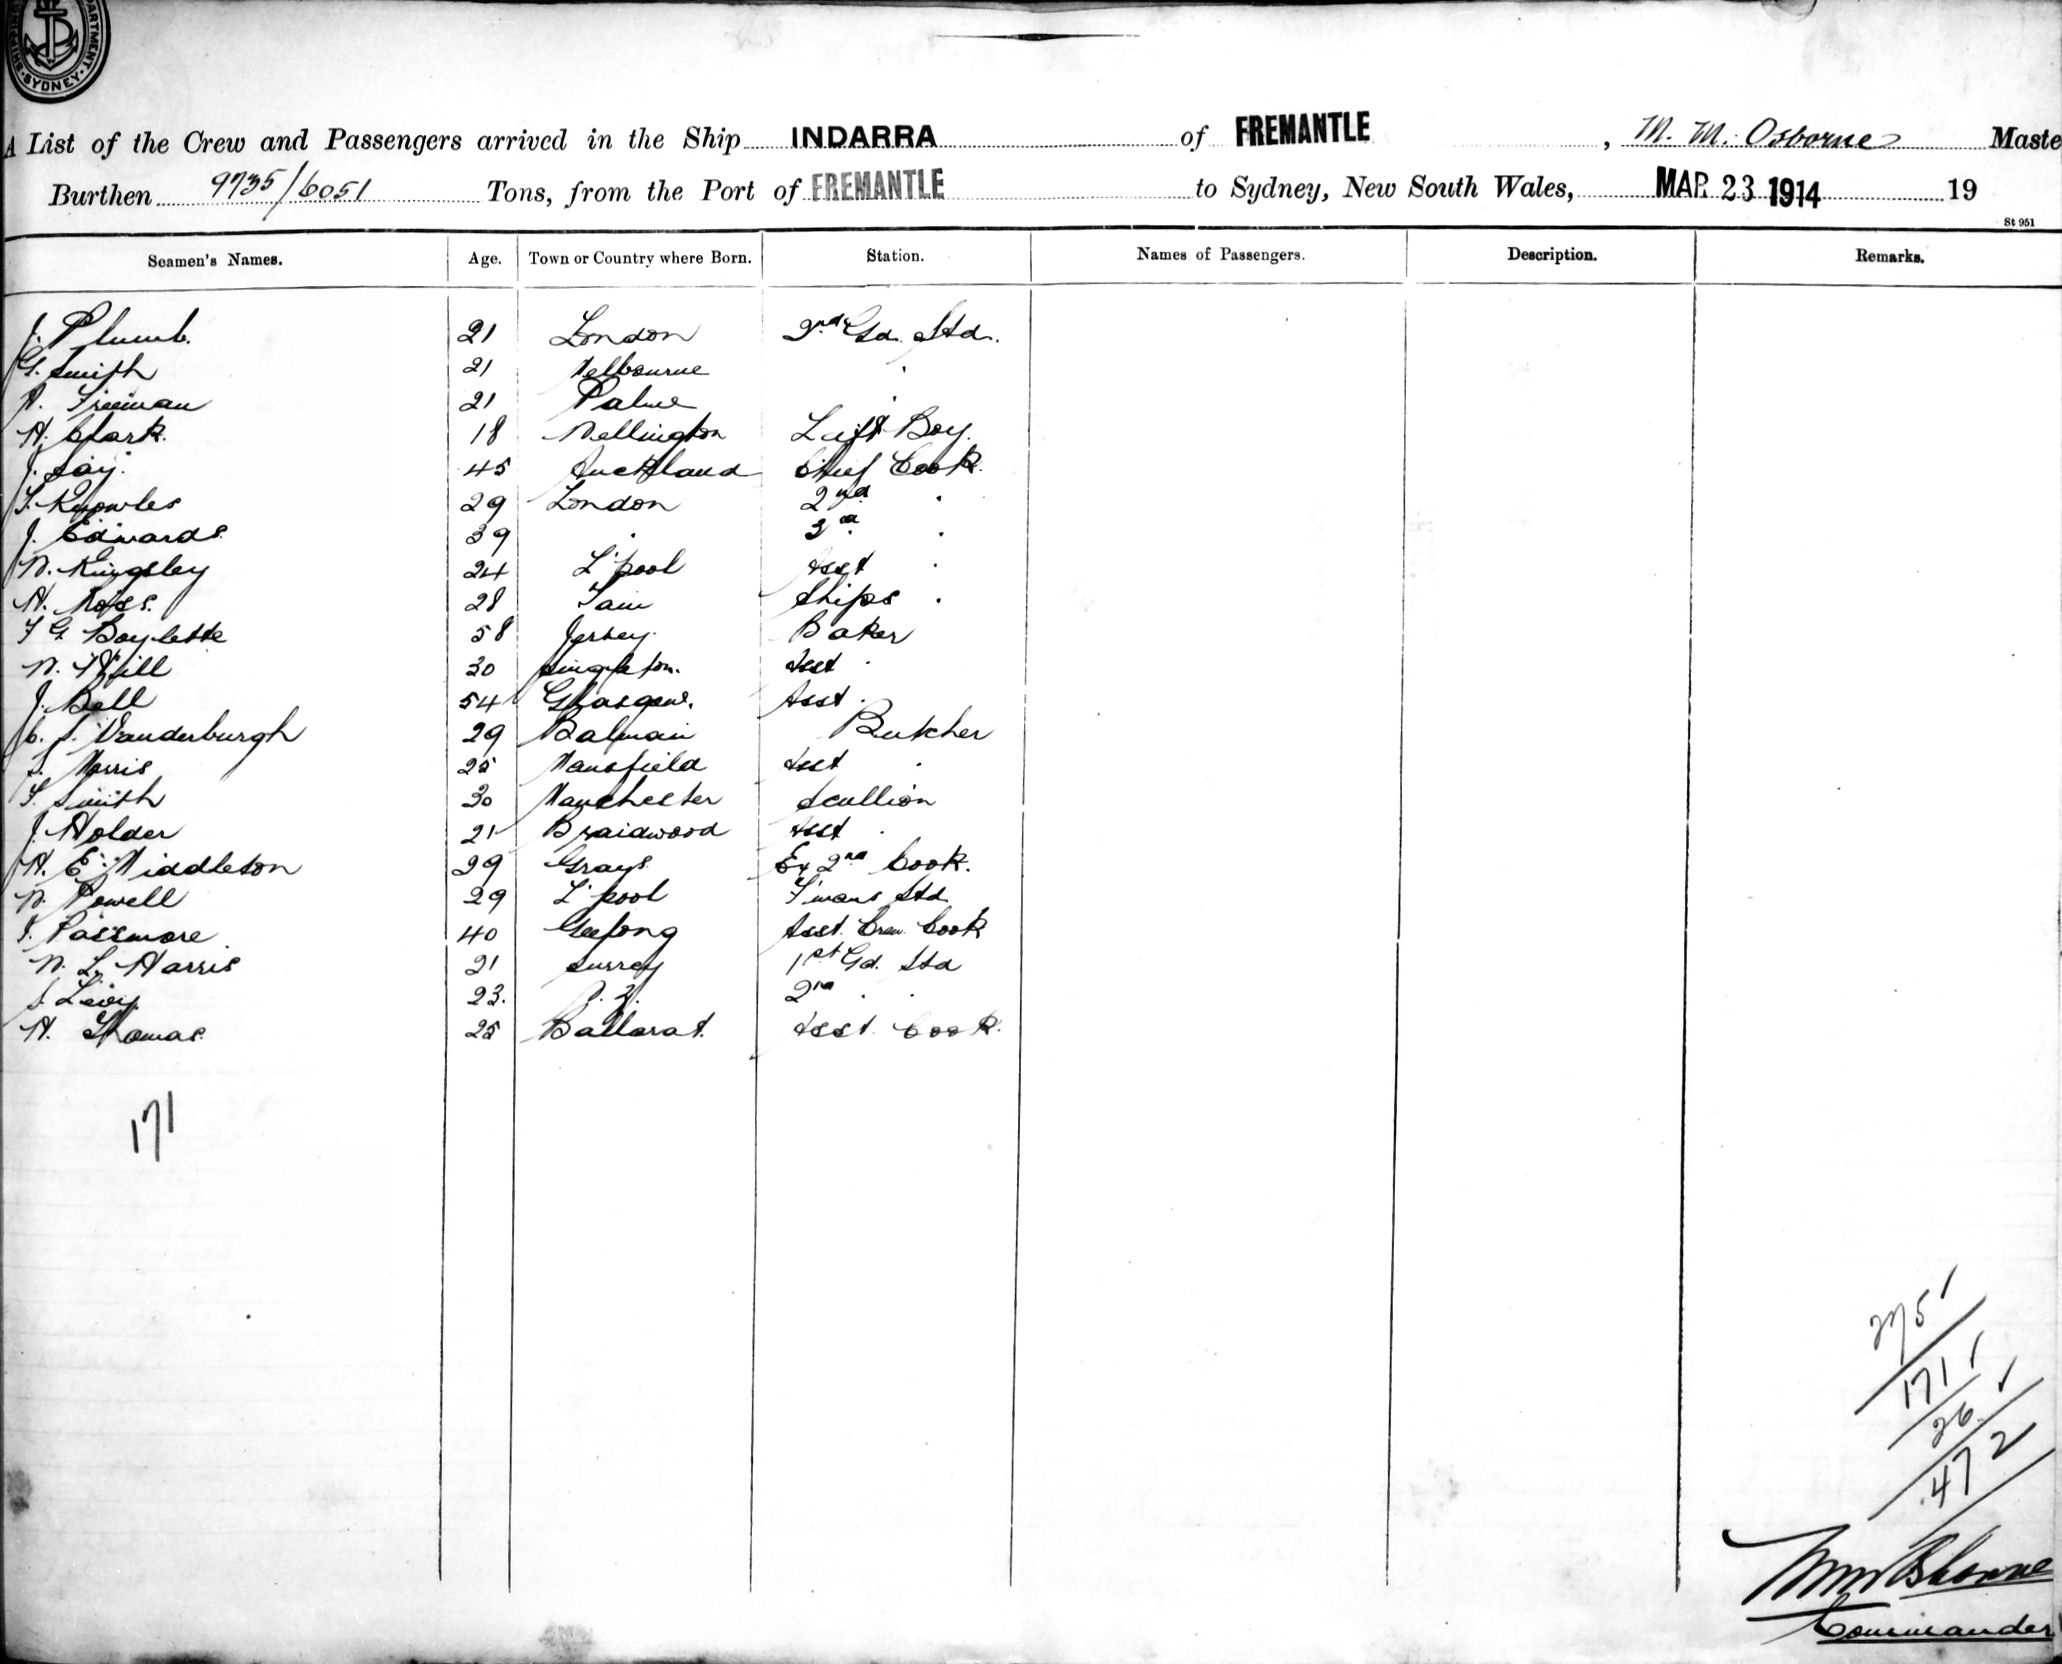 DEPARTMENT · SYDNEY ·
A List of the Crew and Passengers arrived in the Ship INDARRA of FREMANTLE, M. M. Osborne Maste
Burthen 9735/6051 Tons, from the Port of FREMANTLE to Sydney, New South Wales, MAR 23 1914 19
St 951
Seamen's Names. Age. Town or Country where Born. Station. Names of Passengers. Description. Remarks.
J. Plumb. 21 London 2nd Gd. Std.
G. Smith 21 Melbourne
A. Freeman 21
H. Clark. 18 Wellington Lift Boy.
J. 45 Auckland Chief Cook.
F. Knowles 29 London 2nd "
J. Edwards. 39 " 3rd "
W. Kingsley 24 L'pool Asst "
H. Ross. 28 Tain Ships "
F G. Boylette 58 Jersey. Baker
W. Hill 30 Singleton. Asst "
J. Bell 54 Glasgow. Asst "
C. S. Vanderburgh 29 Balmain Butcher
S. Morris 25 Mansfield Asst "
F. Smith 30 Manchester Scullion
J. Holder 21 Braidwood Asst "
H. E. Middleton 29 Grays Ex 2nd Cook.
W. Powell 29 L'pool F'mans Std
J. Passmore 40 Geelong Asst. Crew Cook
W. L. Harris 21 Surrey 1st Gd. Std
S. Levy. 23. N. Z. 2nd " "
H. Thomas. 25 Ballarat. Asst. Cook.
171
275
171
26
472
M M Osborne
Commander